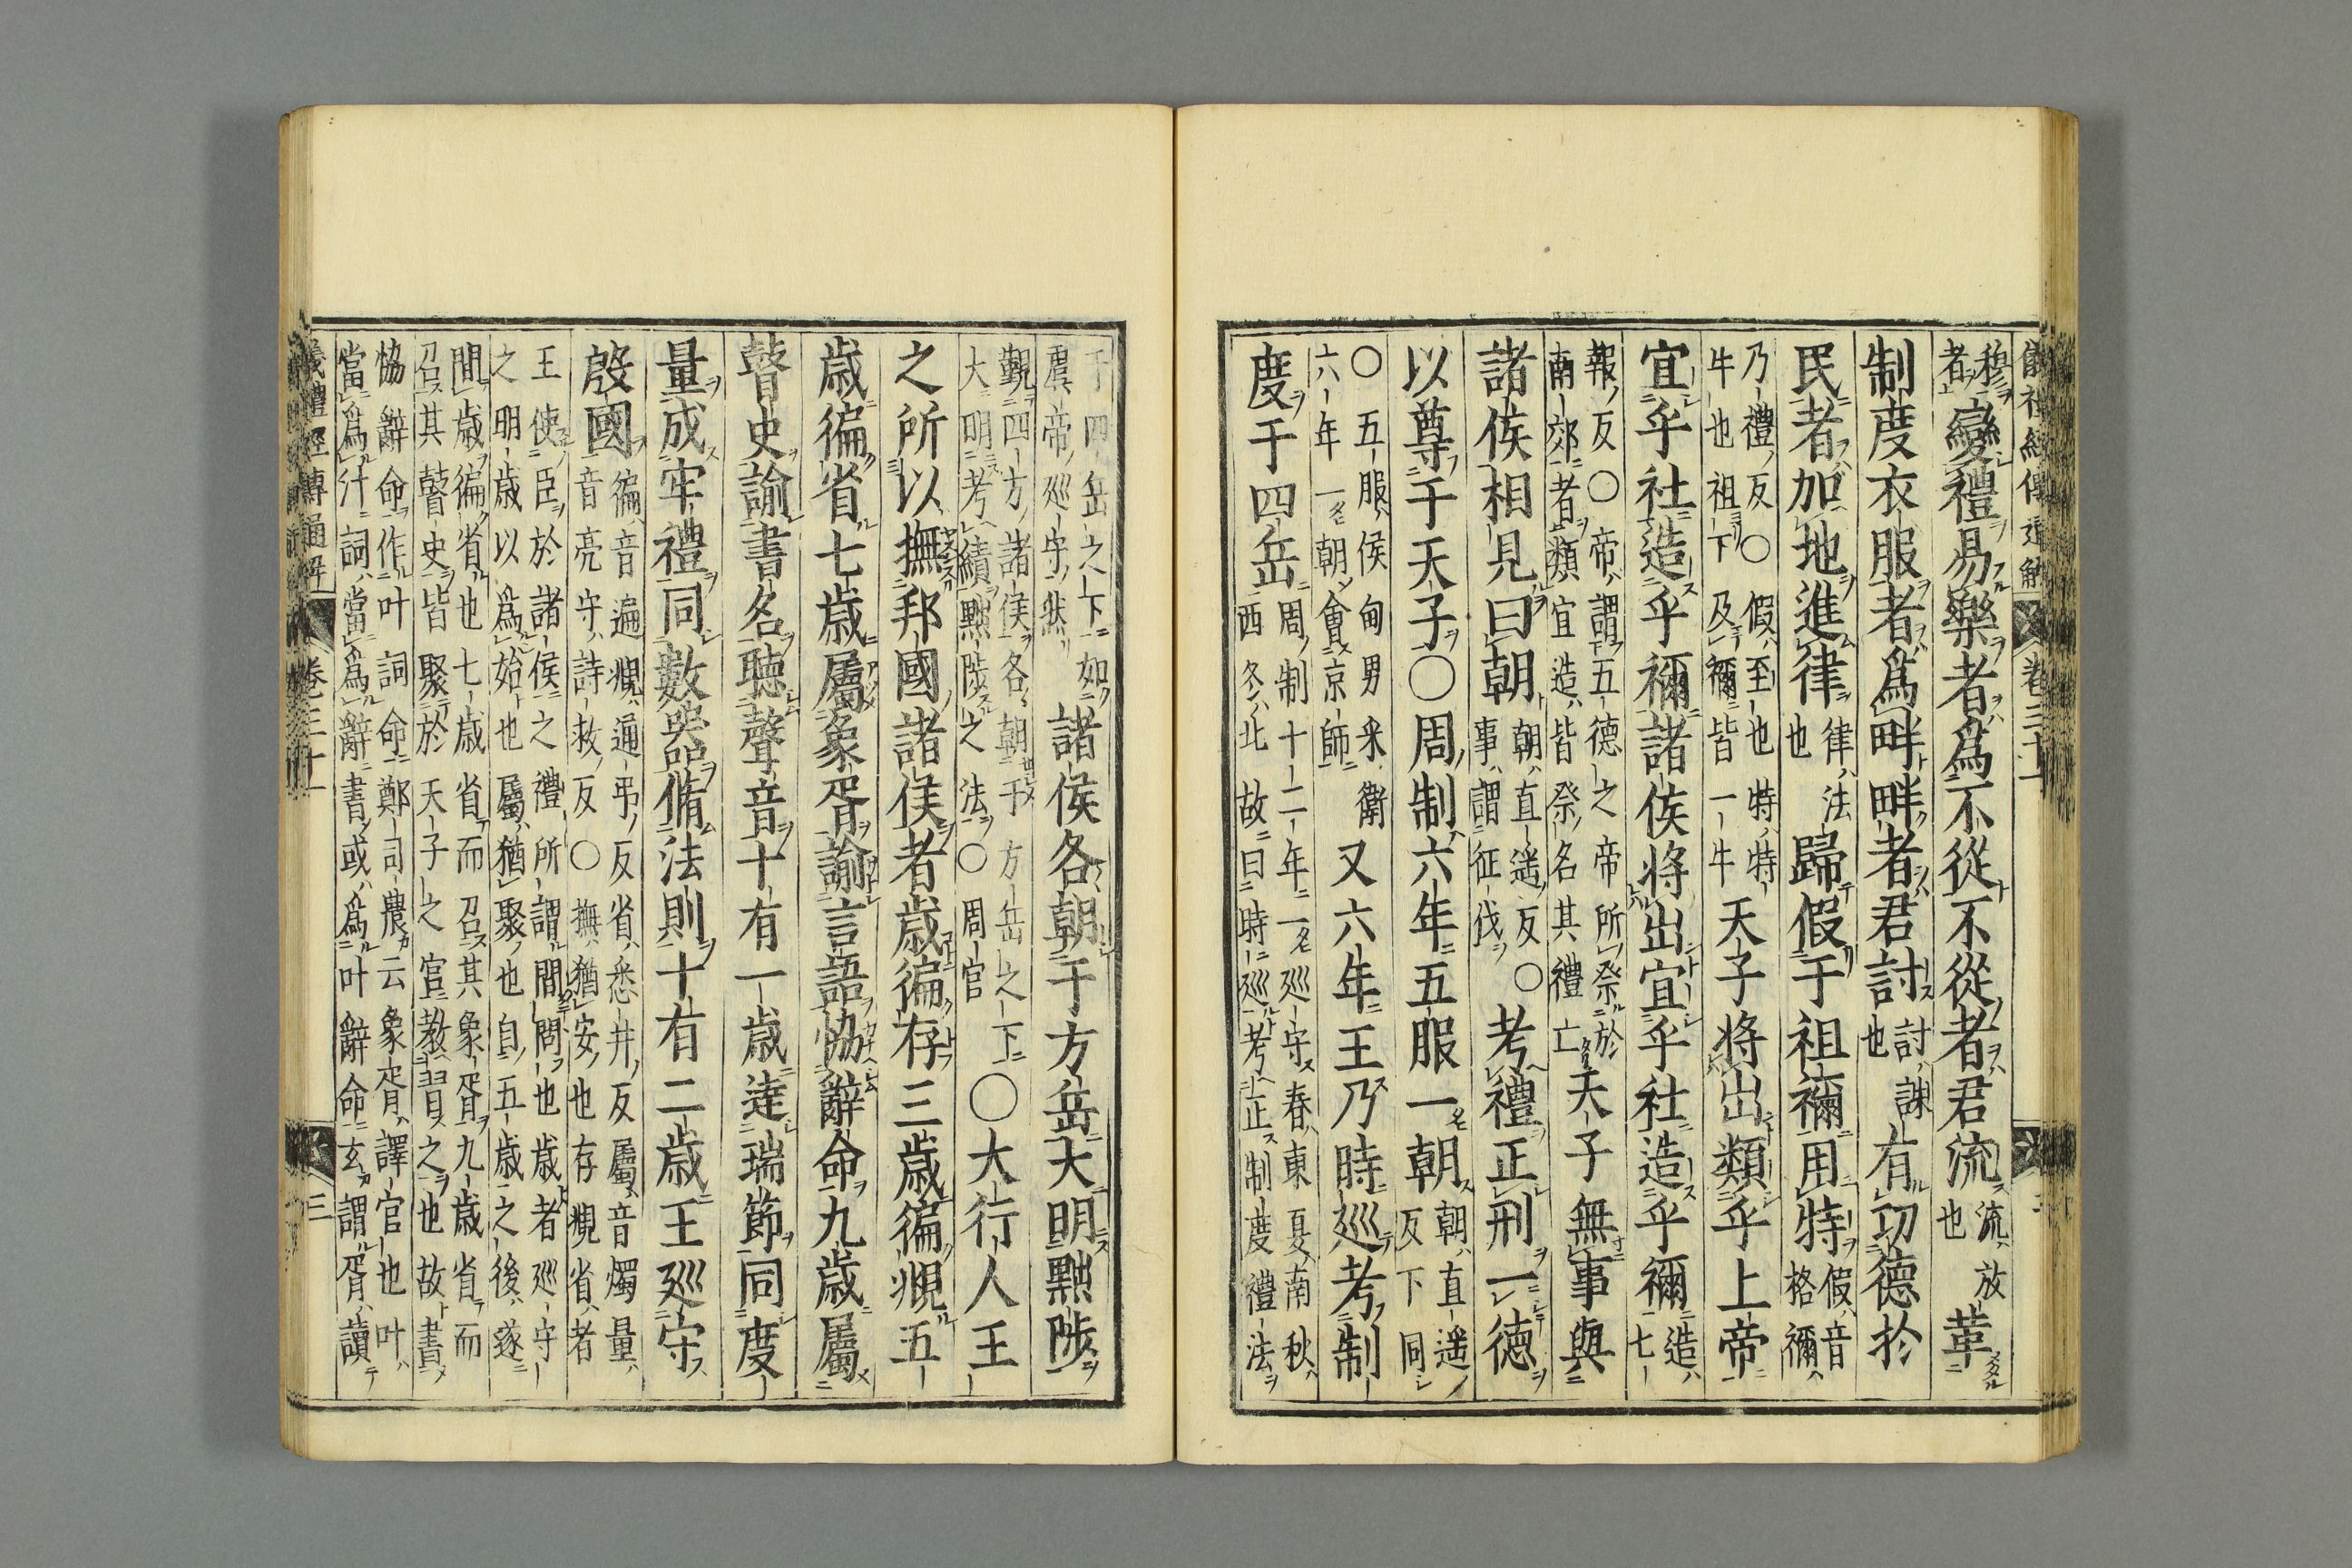 儀禮經傳通解 卷三十一
穆者變禮易樂者爲不從不從者君流流放也革
制度衣服者爲畔畔者君討討誅也有功德於
民者加地進律律法也歸假于祖禰用特假音格禰
乃禮反○假至也特特牛也祖下及禰皆一牛天子將出類乎上帝
宜乎社造乎禰諸侯將出宜乎社造乎禰造七
報反○帝謂五德之帝所祭於南郊者類宜造皆祭名其禮亡天子無事與
諸侯相見曰朝朝直遥反○事謂征伐考禮正刑一德
以尊于天子○周制六年五服一朝朝直遥反下同
○五服侯甸男采衛六年一朝會京師又六年王乃時巡考制
度于四岳周制十二年一巡守春東夏南秋西冬北故曰時巡考正制度禮法
于四岳之下如虞帝巡守然諸侯各朝于方岳大明黜陟
覲四方諸侯各朝于方岳之下大明考績黜陟之法○周官○大行人王
之所以撫邦國諸侯者歲徧存三歲徧覜五
歲徧省七歲屬象胥諭言語恊辭命九歲屬
瞽史諭書名聽聲音十有一歲達瑞節同度
量成牢禮同數器脩法則十有二歲王巡守
殷國徧音遍覜通弔反省悉井反屬音燭量音亮守詩救反○撫猶安也存覜省者
王使臣於諸侯之禮所謂間問也歲者巡守之明歲以爲始也屬猶聚也自五歲之後遂
間歲徧省也七歲省而召其象胥九歲省而召其瞽史皆聚於天子之官教習之也故書
恊辭命作叶詞命鄭司農云象胥譯官也叶當爲汁詞當爲辭書或爲叶辭命玄謂胥讀
儀禮經傳通解 卷三十一 三